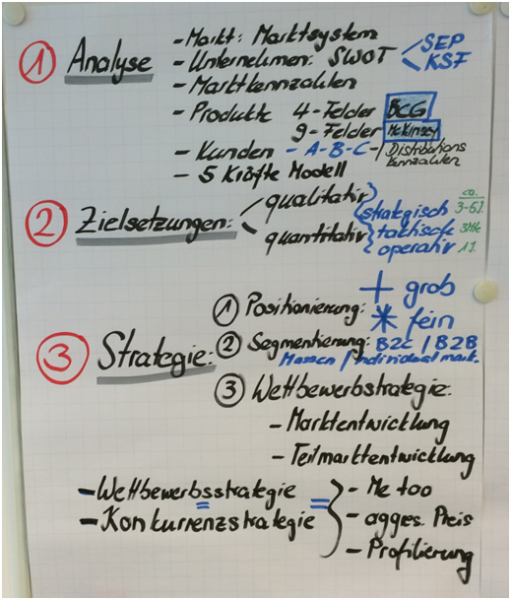 1 Analyse
- Markt: Marktsystem
- Unternehmen: SWOT < SEP
KSF
- Marktkennzahlen
- Produkte 4-Felder BCG
9-Felder McKinsey
- Kunden - A-B-C-/ Distributions
kennzahlen
- 5 Kräfte Modell
2 Zielsetzungen:
qualitativ
quantitativ
strategisch
taktisch
operativ
ca.
3-5J.
1J.
3 Strategie:
1 Positionierung: + grob
* fein
2 Segmentierung: B2C / B2B
Massen / Individual mark.
3 Wettbewerbstrategie:
- Marktentwicklung
- Teilmarktentwicklung
- Wettbewerbsstrategie
=
- Konkurrenzstrategie
=
- Me too
- aggres. Preis
- Profilierung